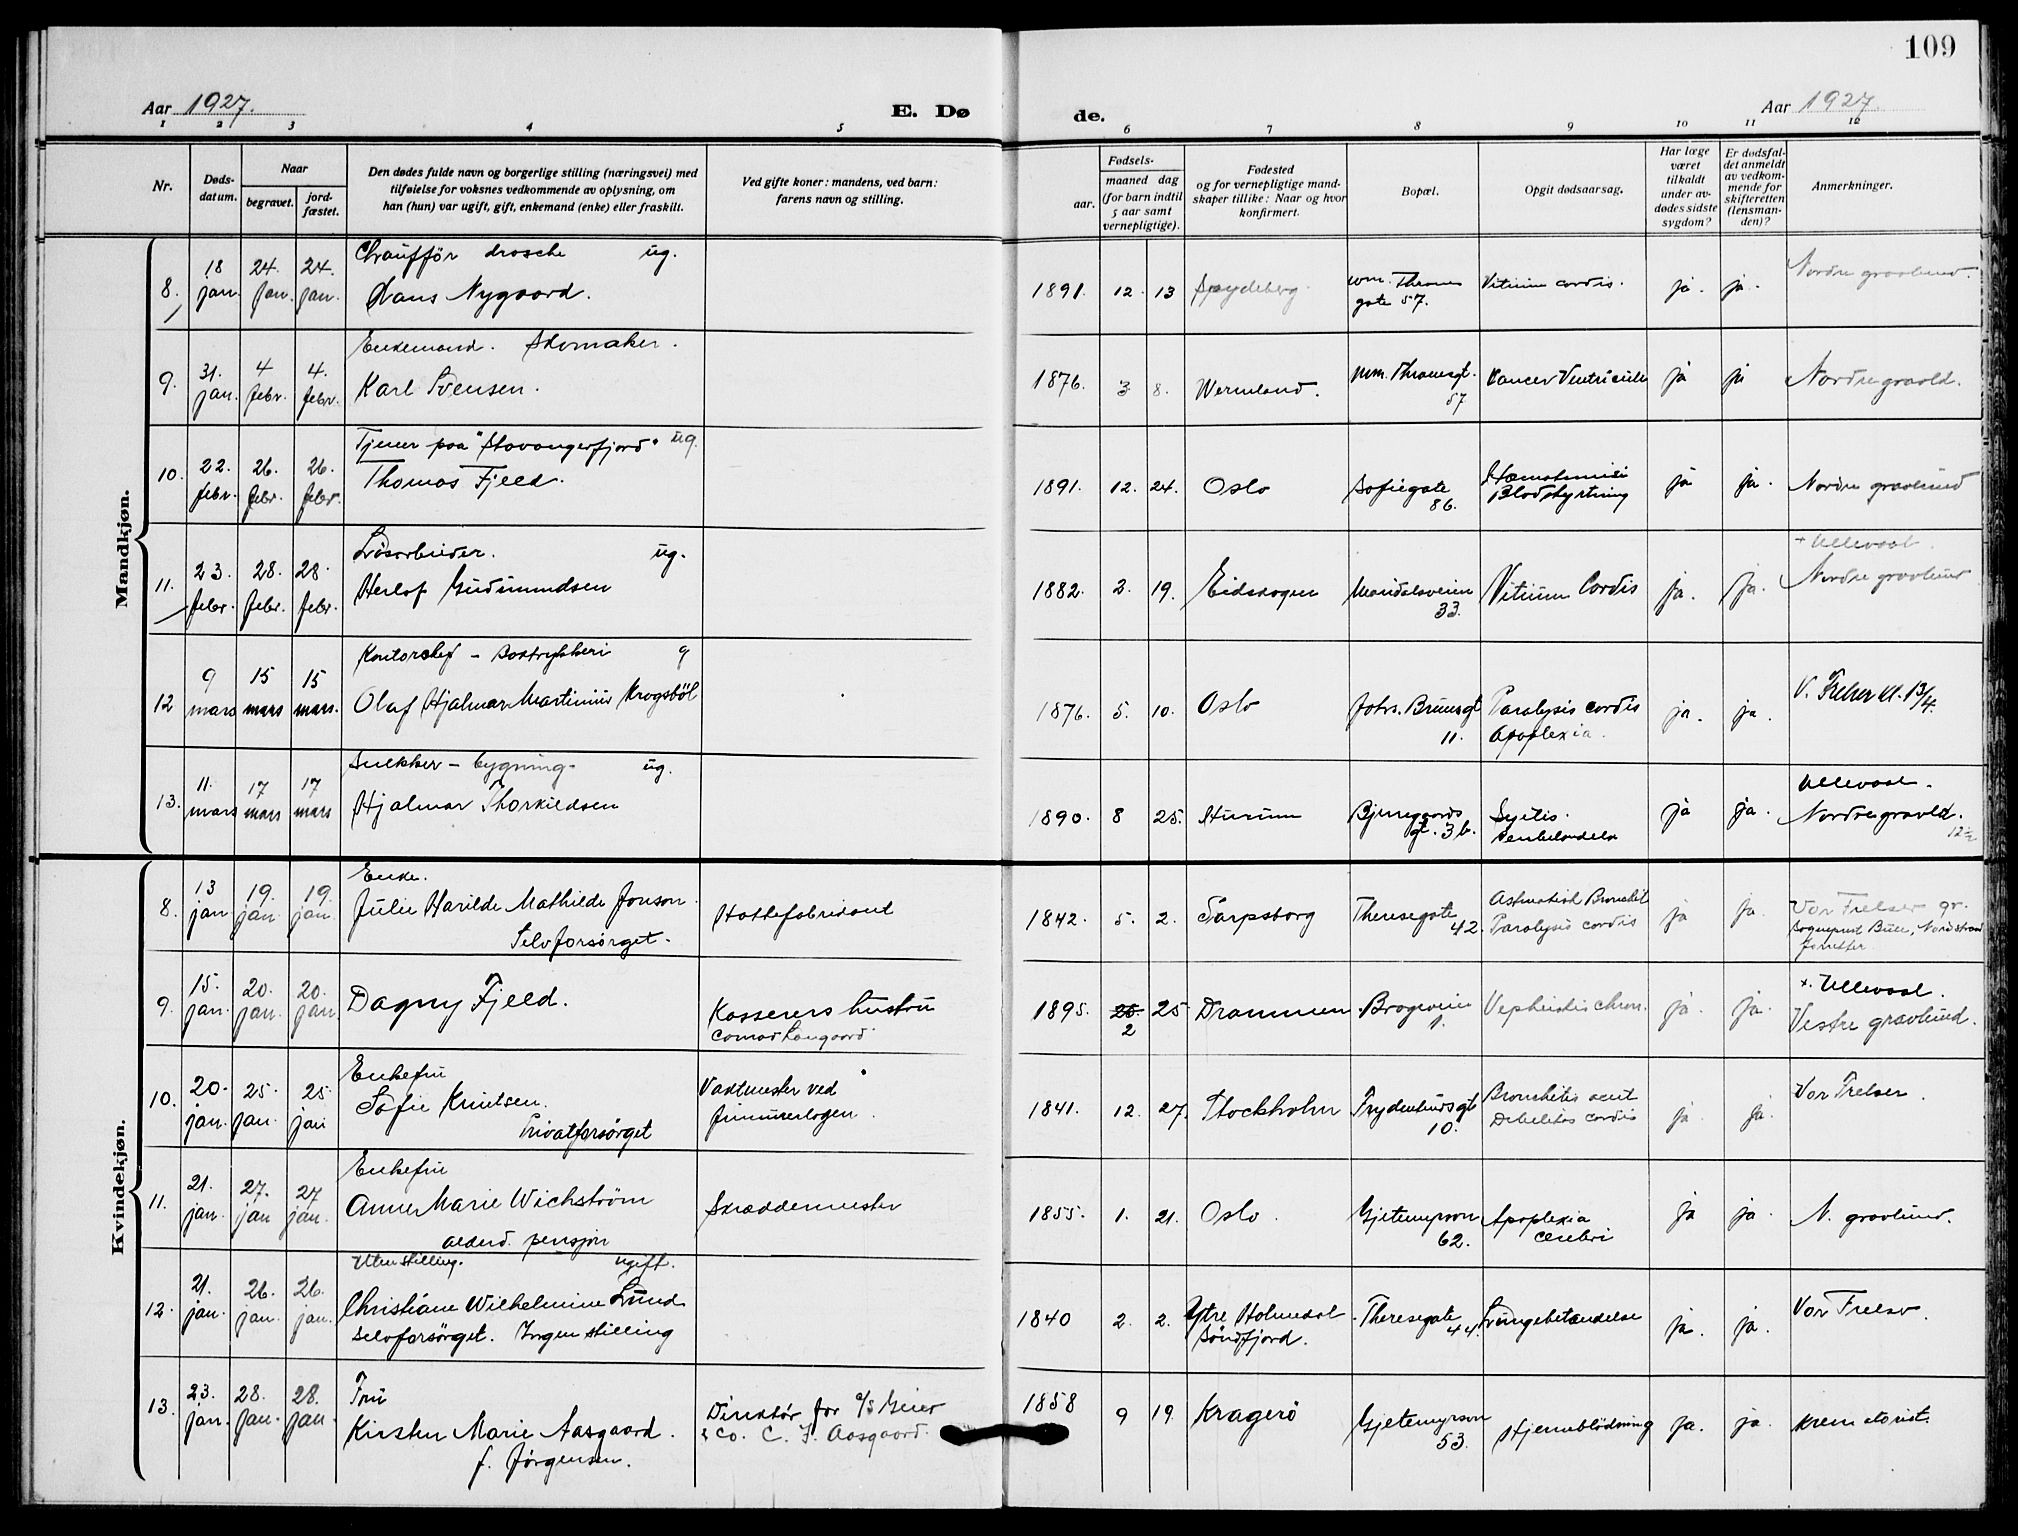 109
Aar 1927.
E. Dø
de.
Aar 1927.
1 2 3 4 5 6 7 8 9 10 11 12
Nr.
Døds-
datum.
Naar
begravet.
jord-
fæstet.
Den dødes fulde navn og borgerlige stilling (næringsvei) med
tilføielse for voksnes vedkommende av oplysning, om
han (hun) var ugift, gift, enkemand (enke) eller fraskilt.
Ved gifte koner: mandens, ved barn:
farens navn og stilling.
Fødsels-
aar.
maaned dag
(for barn indtil
5 aar samt
vernepligtige).
Fødested
og for vernepligtige mand-
skaper tillike: Naar og hvor
konfirmert.
Bopæl.
Opgit dødsaarsag.
Har læge
været
tilkaldt
under av-
dødes sidste
sygdom?
Er dødsfal-
det anmeldt
av vedkom-
mende for
skifteretten
(lensman-
den)?
Anmerkninger.
Mandkjøn.
8. 18 jan. 24. jan. 24. jan. Chaufför drosche ug.
Hans Nygaard.
1891. 12. 13 Spydeberg. Wm. Thranes gate 57. Vitium cordis. ja. ja. Nordre gravlund.
9. 31. jan. 4 febr. 4. febr. Enkemand. Skomaker.
Karl Svensen.
1876. 3 8. Wermland. Wm. Thranesgt. 57 Cancer Ventriculi ja ja Nordre gravld.
10. 22. febr. 26. febr. 26. febr. Tjener paa "Stavangerfjord" ug.
Thomas Fjeld.
1891. 12. 24. Oslo Sofiegate 86. Hæmatemisis Blodstyrtning ja ja. Nordre gravlund
11. 23. febr. 28. febr. 28. febr. Løsarbeider. ug.
Herlof Gudmundsen
1882. 2. 19. Eidskogen Maridalsveien 33. Vitium Cordis ja. ja. + Ullevaal.
Nordre gravlund
12 9 mars 15 mars 15 mars. Kontorchef - Boktrykkeri g
Olaf Hjalmar Martinius Krogsböl
1876. 5. 10. Oslo Johs. Brunsgt 11. Paralysis cordis Apoplexia. ja. ja. V. Frelser kl. 13/4.
13. 11. mars 17 mars 17 mars Snekker - bygning- ug.
Hjalmar Thorkildsen
1890. 8 25. Hurum Bjerregaards gt. 3b. ja ja. Ullevaal.
Nordre gravld.
12½
Kvindekjøn.
8. 13 jan 19. jan. 19. jan. Enke.
Julie Harilde Mathilde Jonson.
Selvforsørget.
Hattefabrikant
1842. 5. 2. Sarpsborg Theresegate 42. Astmatisk Bronchit Paralysis cordis ja ja. Vor Frelser gr.
Sogneprest Bull, Nordstrand
forretter
9. 15. jan. 20. jan. 20. jan Dagny Fjeld.
Kasserers hustru
1895. 2 25 Drammen. 1. Nephritis chron. ja. ja. +. Ullevaal.
Vestre gravlund.
10. 20. jan. 25. jan. 25. jan Enkefru
Sofie Knutsen.
Privatforsørget
Vaktmester ved
Frimurerlogen.
1841. 12. 27. Stockholm Frydenlundsgt 10. Bronchitis acut Debilitas cordis ja. ja. Vor Frelser.
11. 21. jan. 27. jan 27 jan. Enkefru
Anne Marie Wichstrøm
alderd. pensjon
Skræddermester
1855. 1. 21. Oslo. Gjetemyrsvn 62. Apoplexia cerebri ja ja. N. gravlund.
12. 21. jan. 26. jan. 26. jan. Uten stilling. ugift.
Christiane Wilhelmine Lund
selvforsørget. Ingen stilling
1840 2. 2. Ytre Holmedal Søndfjord. Theresegate 44. Lungebetændelse ja. ja. Vor Frelser
13. 23. jan. 28. jan. 28. jan. Fru
Kirsten Marie Aasgaard.
f. Jørgensen.
Direktør for a/s Geier
& Co. C. F. Aasgaard.
1858 9 19. Kragerö Gjetemyrsvn 53. Hjerneblödning ja. ja. krematoriet.